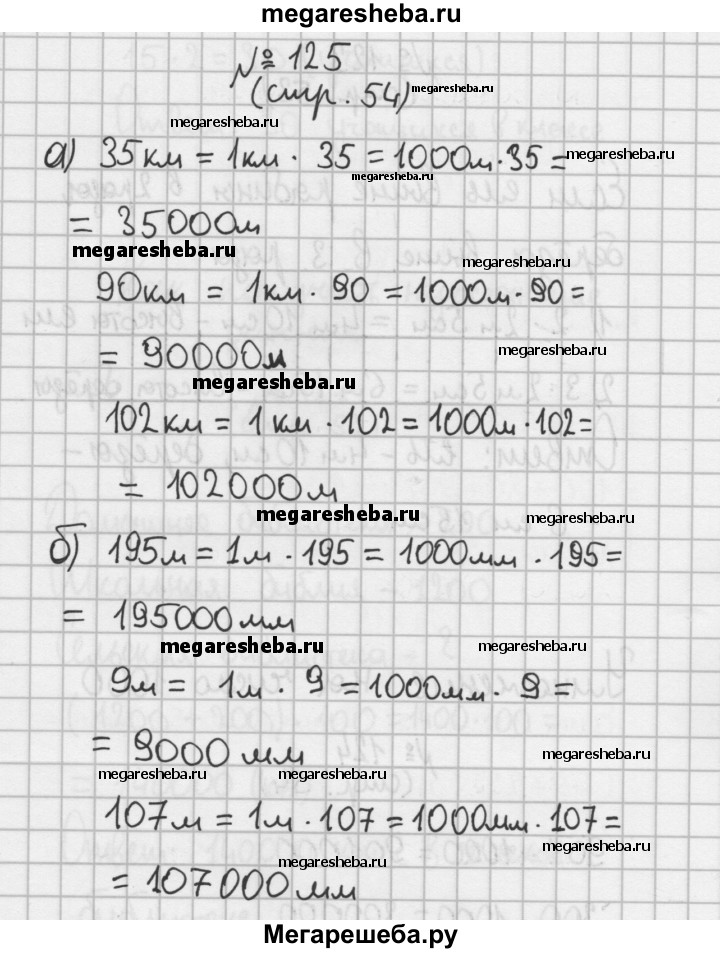 megaresheba.ru
№ 125
(стр. 54) megaresheba.ru
megaresheba.ru
а) 35км = 1км · 35 = 1000м·35 = megaresheba.ru
megaresheba.ru
= 35000м
megaresheba.ru
megaresheba.ru
90км = 1км · 90 = 1000м·90 =
megaresheba.ru
= 90000м
megaresheba.ru
102км = 1 км · 102 = 1000м·102 =
= 102000м
megaresheba.ru megaresheba.ru
б) 195м = 1м · 195 = 1000мм · 195 =
= 195000мм
megaresheba.ru megaresheba.ru
9м = 1м · 9 = 1000мм · 9 =
= 9000 мм
megaresheba.ru
megaresheba.ru megaresheba.ru
107м = 1м · 107 = 1000мм · 107 =
megaresheba.ru
megaresheba.ru
= 107000мм
megaresheba.ru
Мегарешеба.ру